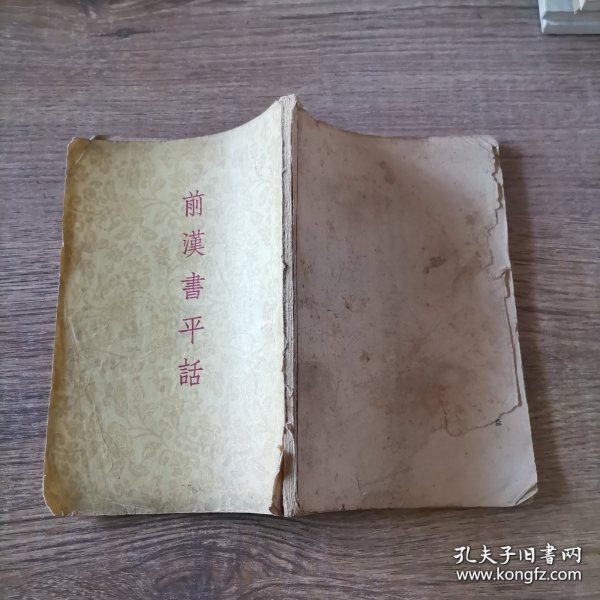 前漢書平話
孔夫子旧書网
www.kongfz.com